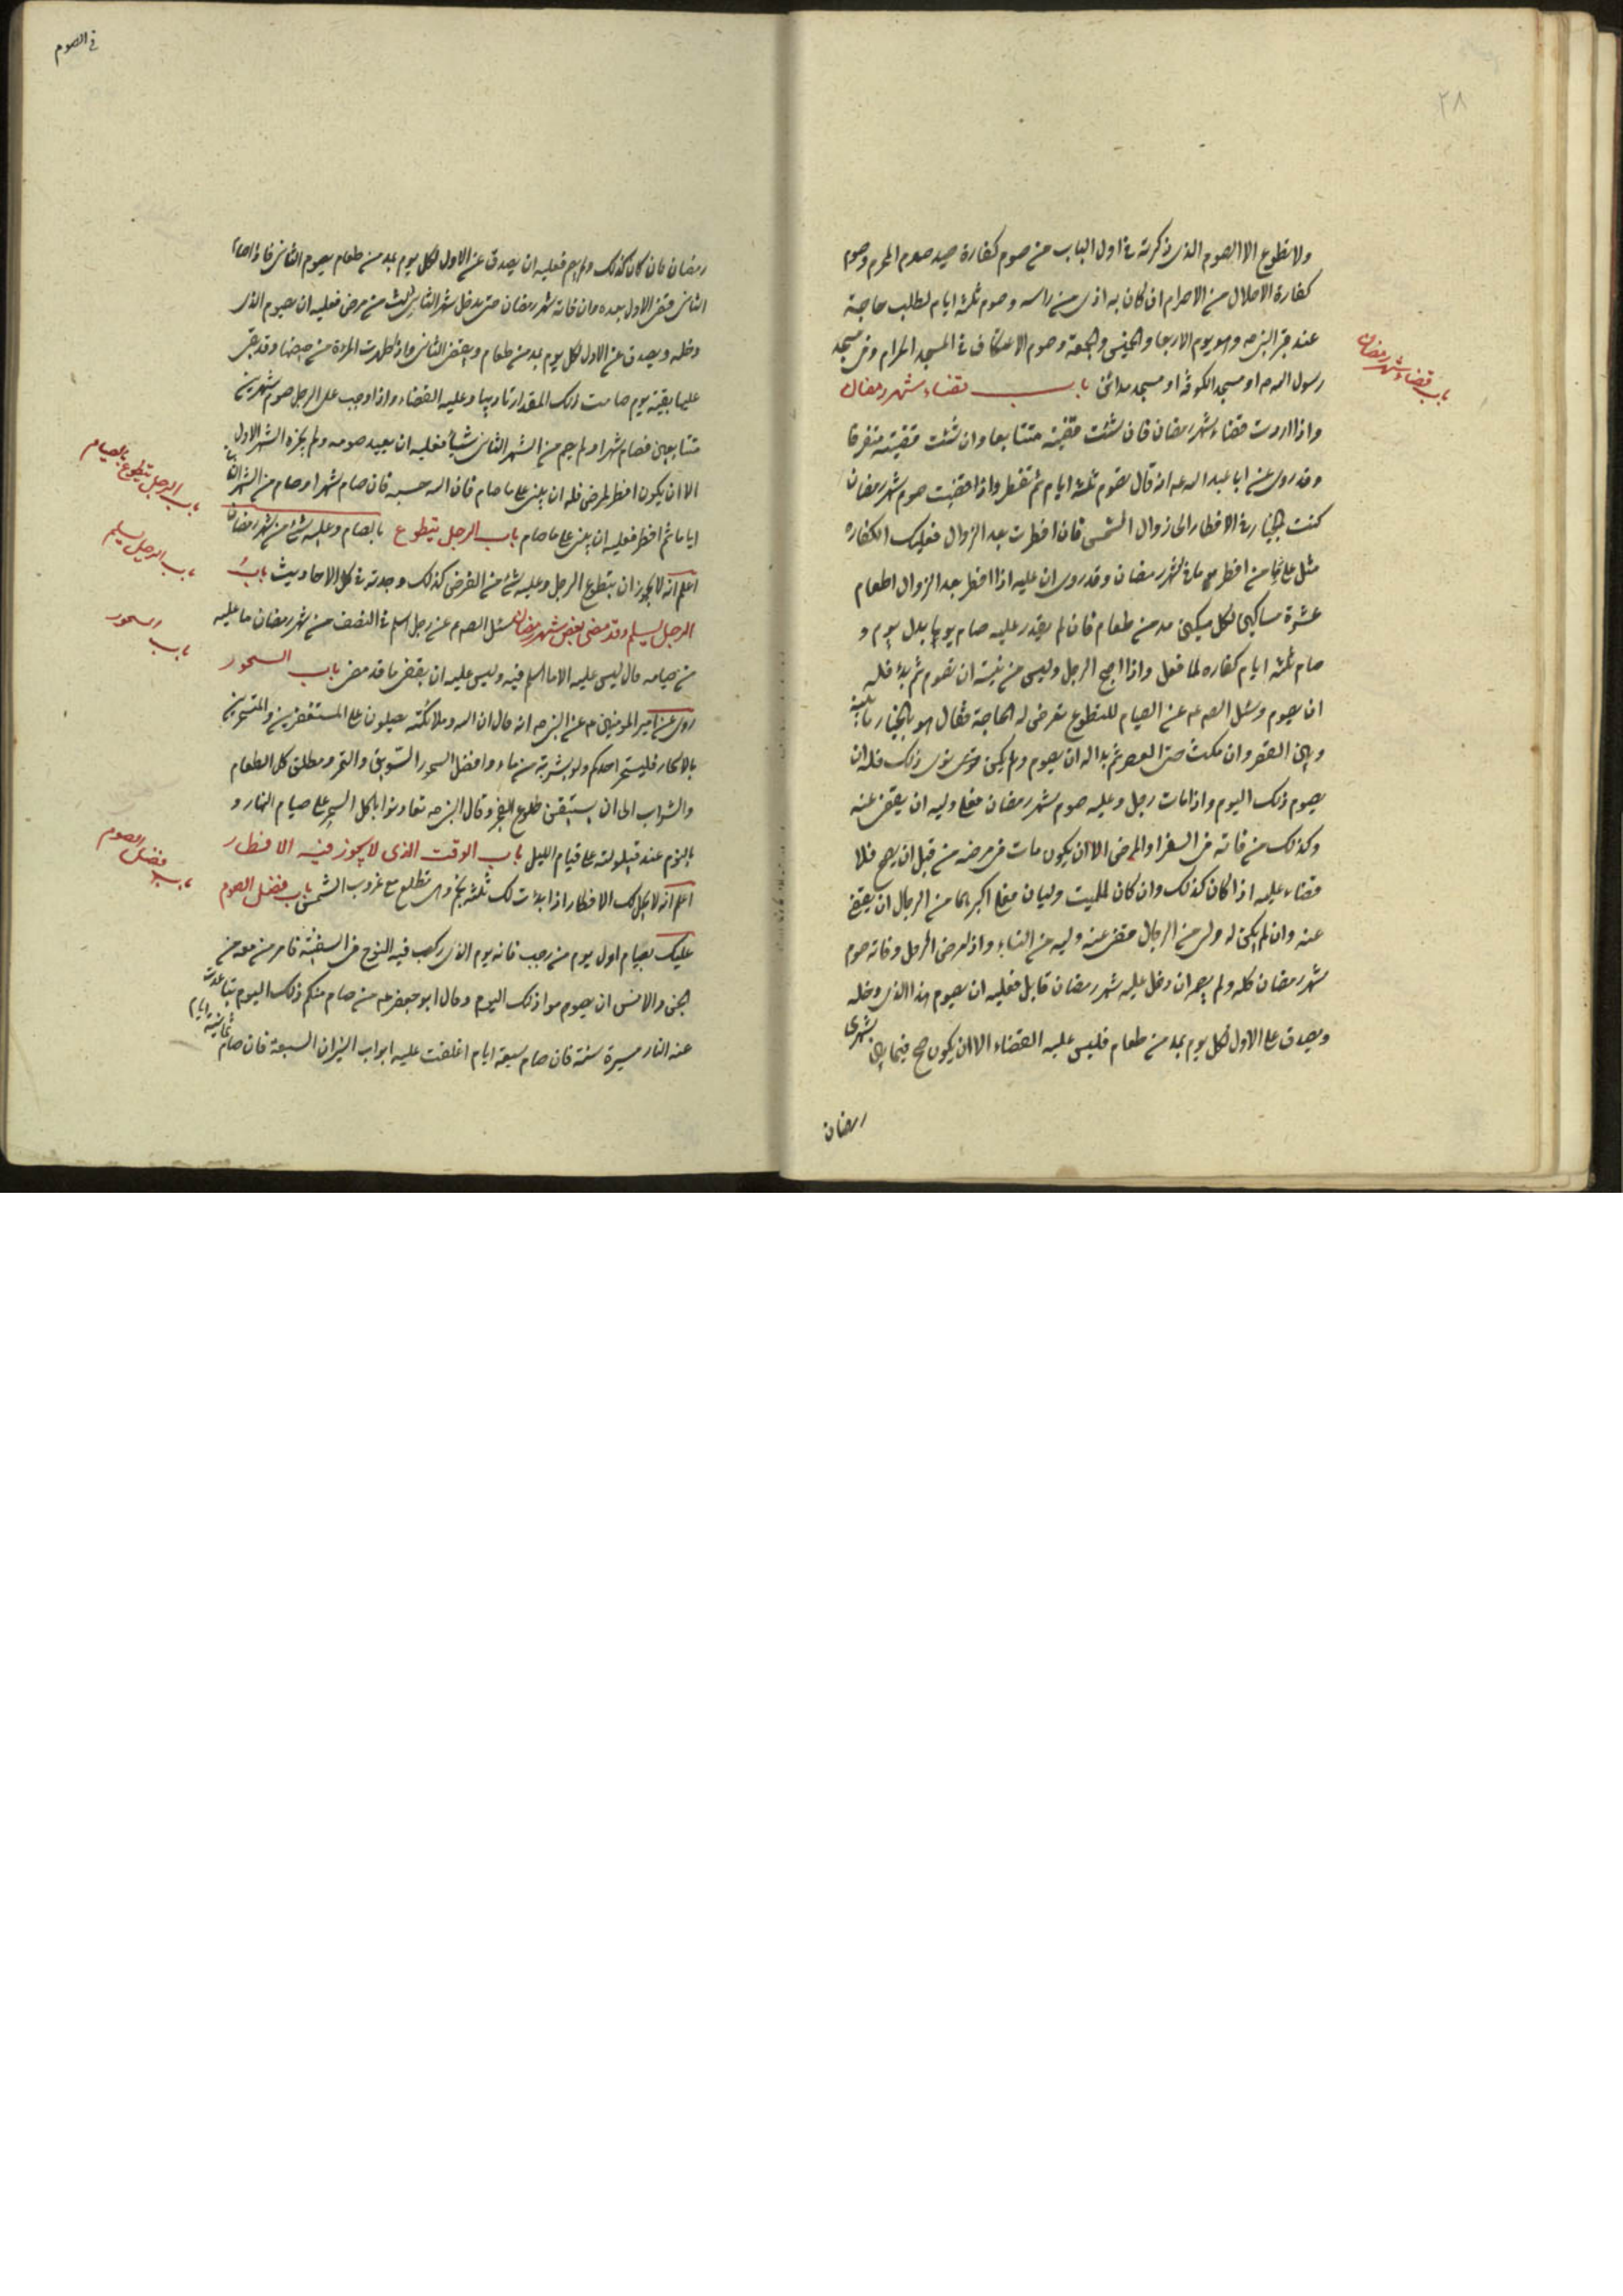 ٢٨
ولا تطوع الا الصوم الذى ذكرته فى اول الباب من صوم كفارة صيد صدم المحرم وصوم
كفارة الاحلال من الاحرام ان كان به اذى من راسه وصوم ثلثة ايام لطلب حاجة
عند قبر النبى ص وهو يوم الاربعا والخميس والجمعة وصوم الاعتكاف فى المسجد الحرام وفى مسجد
رسول الله ص او مسجد الكوفة او مسجد مدائن باب قضاء شهر رمضان
باب قضاء شهر رمضان
واذا اردت قضاء شهر رمضان فان شئت قضيته متتابعا وان شئت قضيته متفرقا
وقد روى عن ابا عبد الله ع انه قال تصوم ثلثة ايام ثم تفطر واذا قضيت صوم شهر رمضان
كنت بالخيار فى الافطار الى زوال الشمس فان افطرت بعد الزوال فعليك الكفاره
مثل على ما من افطر يوما فى شهر رمضان وقد روى ان عليه اذا افطر بعد الزوال اطعام
عشرة مساكين لكل مسكين مد من طعام فان لم يقدر عليه صام يوما بدل يوم و
صام ثلثة ايام كفاره لما فعل واذا اصبح الرجل وليس من نيته ان تصوم ثم بدا فله
ان يصوم وسئل الص ع عن الصيام للتطوع تعرض له الحاجة فقال هو بالخيار ما بينه
وبين العصر وان مكث حتى العصر ثم بدا له ان يصوم ولم يكن نوى ذلك فله ان
يصوم ذلك اليوم واذا مات رجل وعليه صوم شهر رمضان فعلى وليه ان يقضى عنه
وكذلك من فاته فى السفر او المرض الا ان يكون مات فى مرضه من قبل ان يصح فلا
قضاء عليه اذا كان كذلك وان كان للميت وليان فعلى اكبرهما من الرجال ان يقضى
عنه وان لم يكن له ولى من الرجال قضى عنه وليه من النساء واذا مرض الرجل وفاته صوم
شهر رمضان كله ولم يصمه ان دخل عليه شهر رمضان قابل فعليه ان يصوم هذا الذى دخله
ويصدق على الاول لكل يوم بمد من طعام فليس عليه القضاء الا ان يكون صح فيما بين شهرى
رمضان
فى الصوم
رمضان فان كان كذلك ولم يصم فعليه ان يصدق عن الاول لكل يوم بمد من طعام يصوم الثانى فاذا صام
الثانى قضى الاول بعده وان فاته شهر رمضان حتى يدخل شهر الثالث من مرض فعليه ان يصوم الذى
دخله ويصدق عن الاول لكل يوم بمد من طعام ويقضى الثانى واذا طهرت المراة من حيضها وقد بقى
عليها بقية يوم صامت ذلك المقدار تاديبا وعليه القضاء واذا وجب على الرجل صوم شهرين
متتابعين فصام شهرا ولم يصم من الشهر الثانى شيئا فعليه ان يعيد صومه ولم يجزه الشهر الاول
الا ان يكون افطر لمرض فله ان يبنى على ما صام فان الله حبسه فان صام شهرا وصام من الشهر الثانى
اياما ثم افطر فعليه ان يبنى على ما صام باب الرجل يتطوع بالصيام وعليه شئ من شهر رمضان
باب الرجل يتطوع بالصيام
اعلم انه لا يجوز ان يتطوع الرجل وعليه شئ من الفرض كذلك وجدته فى كل الاحاديث باب
باب الرجل يسلم
الرجل يسلم وقد مضى بعض شهر رمضان سئل الص ع عن رجل اسلم فى النصف من شهر رمضان ما عليه
من صيامه قال ليس عليه الا ما اسلم فيه وليس عليه ان يقضى ما قد مضى باب السحور
باب السحور
روى عن امير المومنين ع عن النبى ص انه قال ان الله وملائكته يصلون على المستغفرين والمتسحرين
بالاسحار فليتسحر احدكم ولو بشربة من ماء وافضل السحور السويق والتمر ومطلق كل الطعام
والشراب الى ان يستيقن طلوع الفجر وقال النبى ص تعاونوا باكل السحر على صيام النهار و
بالنوم عند قيلولته على قيام الليل باب الوقت الذى لا يجوز فيه الافطار
اعلم انه لا يحل لك الافطار اذا بدات لك ثلثة انجم وهى تطلع مع غروب الشمس باب فضل الصوم
باب فضل الصوم
عليك بصيام اول يوم من رجب فانه يوم الذى ركب فيه النوح فى السفينة فامر من معه من
الجن والانس ان يصوموا ذلك اليوم وقال ابو جعفر ع من صام منكم ذلك اليوم تباعدت
عنه النار مسيرة سنة فان صام سبعة ايام اغلقت عليه ابواب النيران السبعة فان صام ثمانية ايام